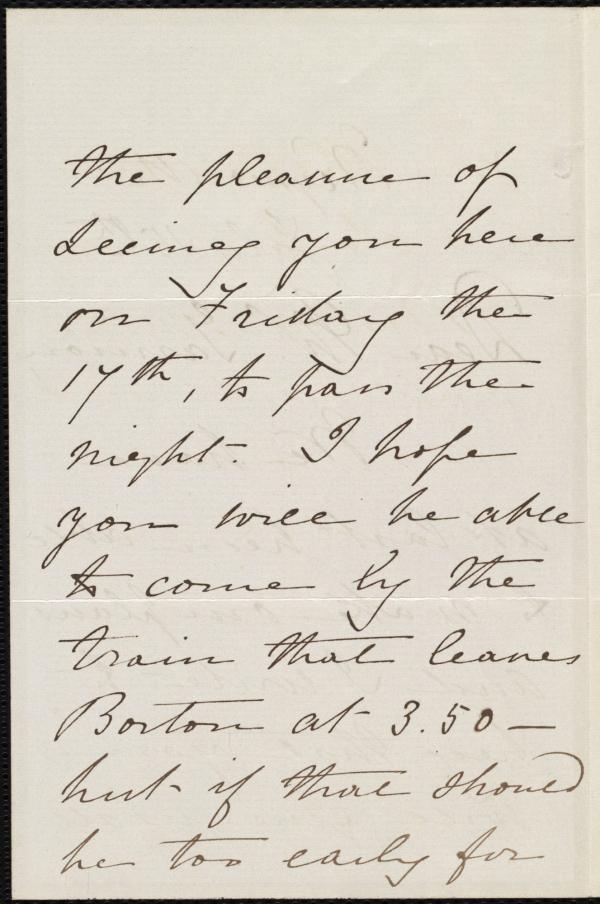 the pleasure of
seeing you here
on Friday the
17th, to pass the
night. I hope
you will be able
to come by the
train that leaves
Boston at 3.50 —
but if that should
be too early for